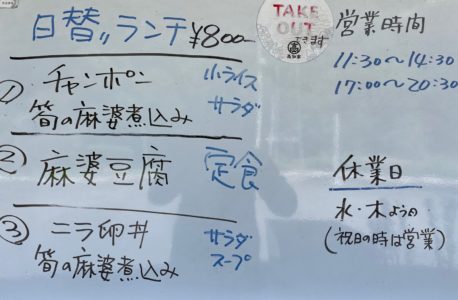 日替〃ランチ ¥800
① チャンポン 小ライス
筍の麻婆煮込み サラダ
② 麻婆豆腐 定食
③ ニラ卵丼 サラダ
筍の麻婆煮込み スープ
TAKE
OUT
できます
営業時間
11:30〜14:30
17:00〜20:30
休業日
水・木よう日
(祝日の時は営業)